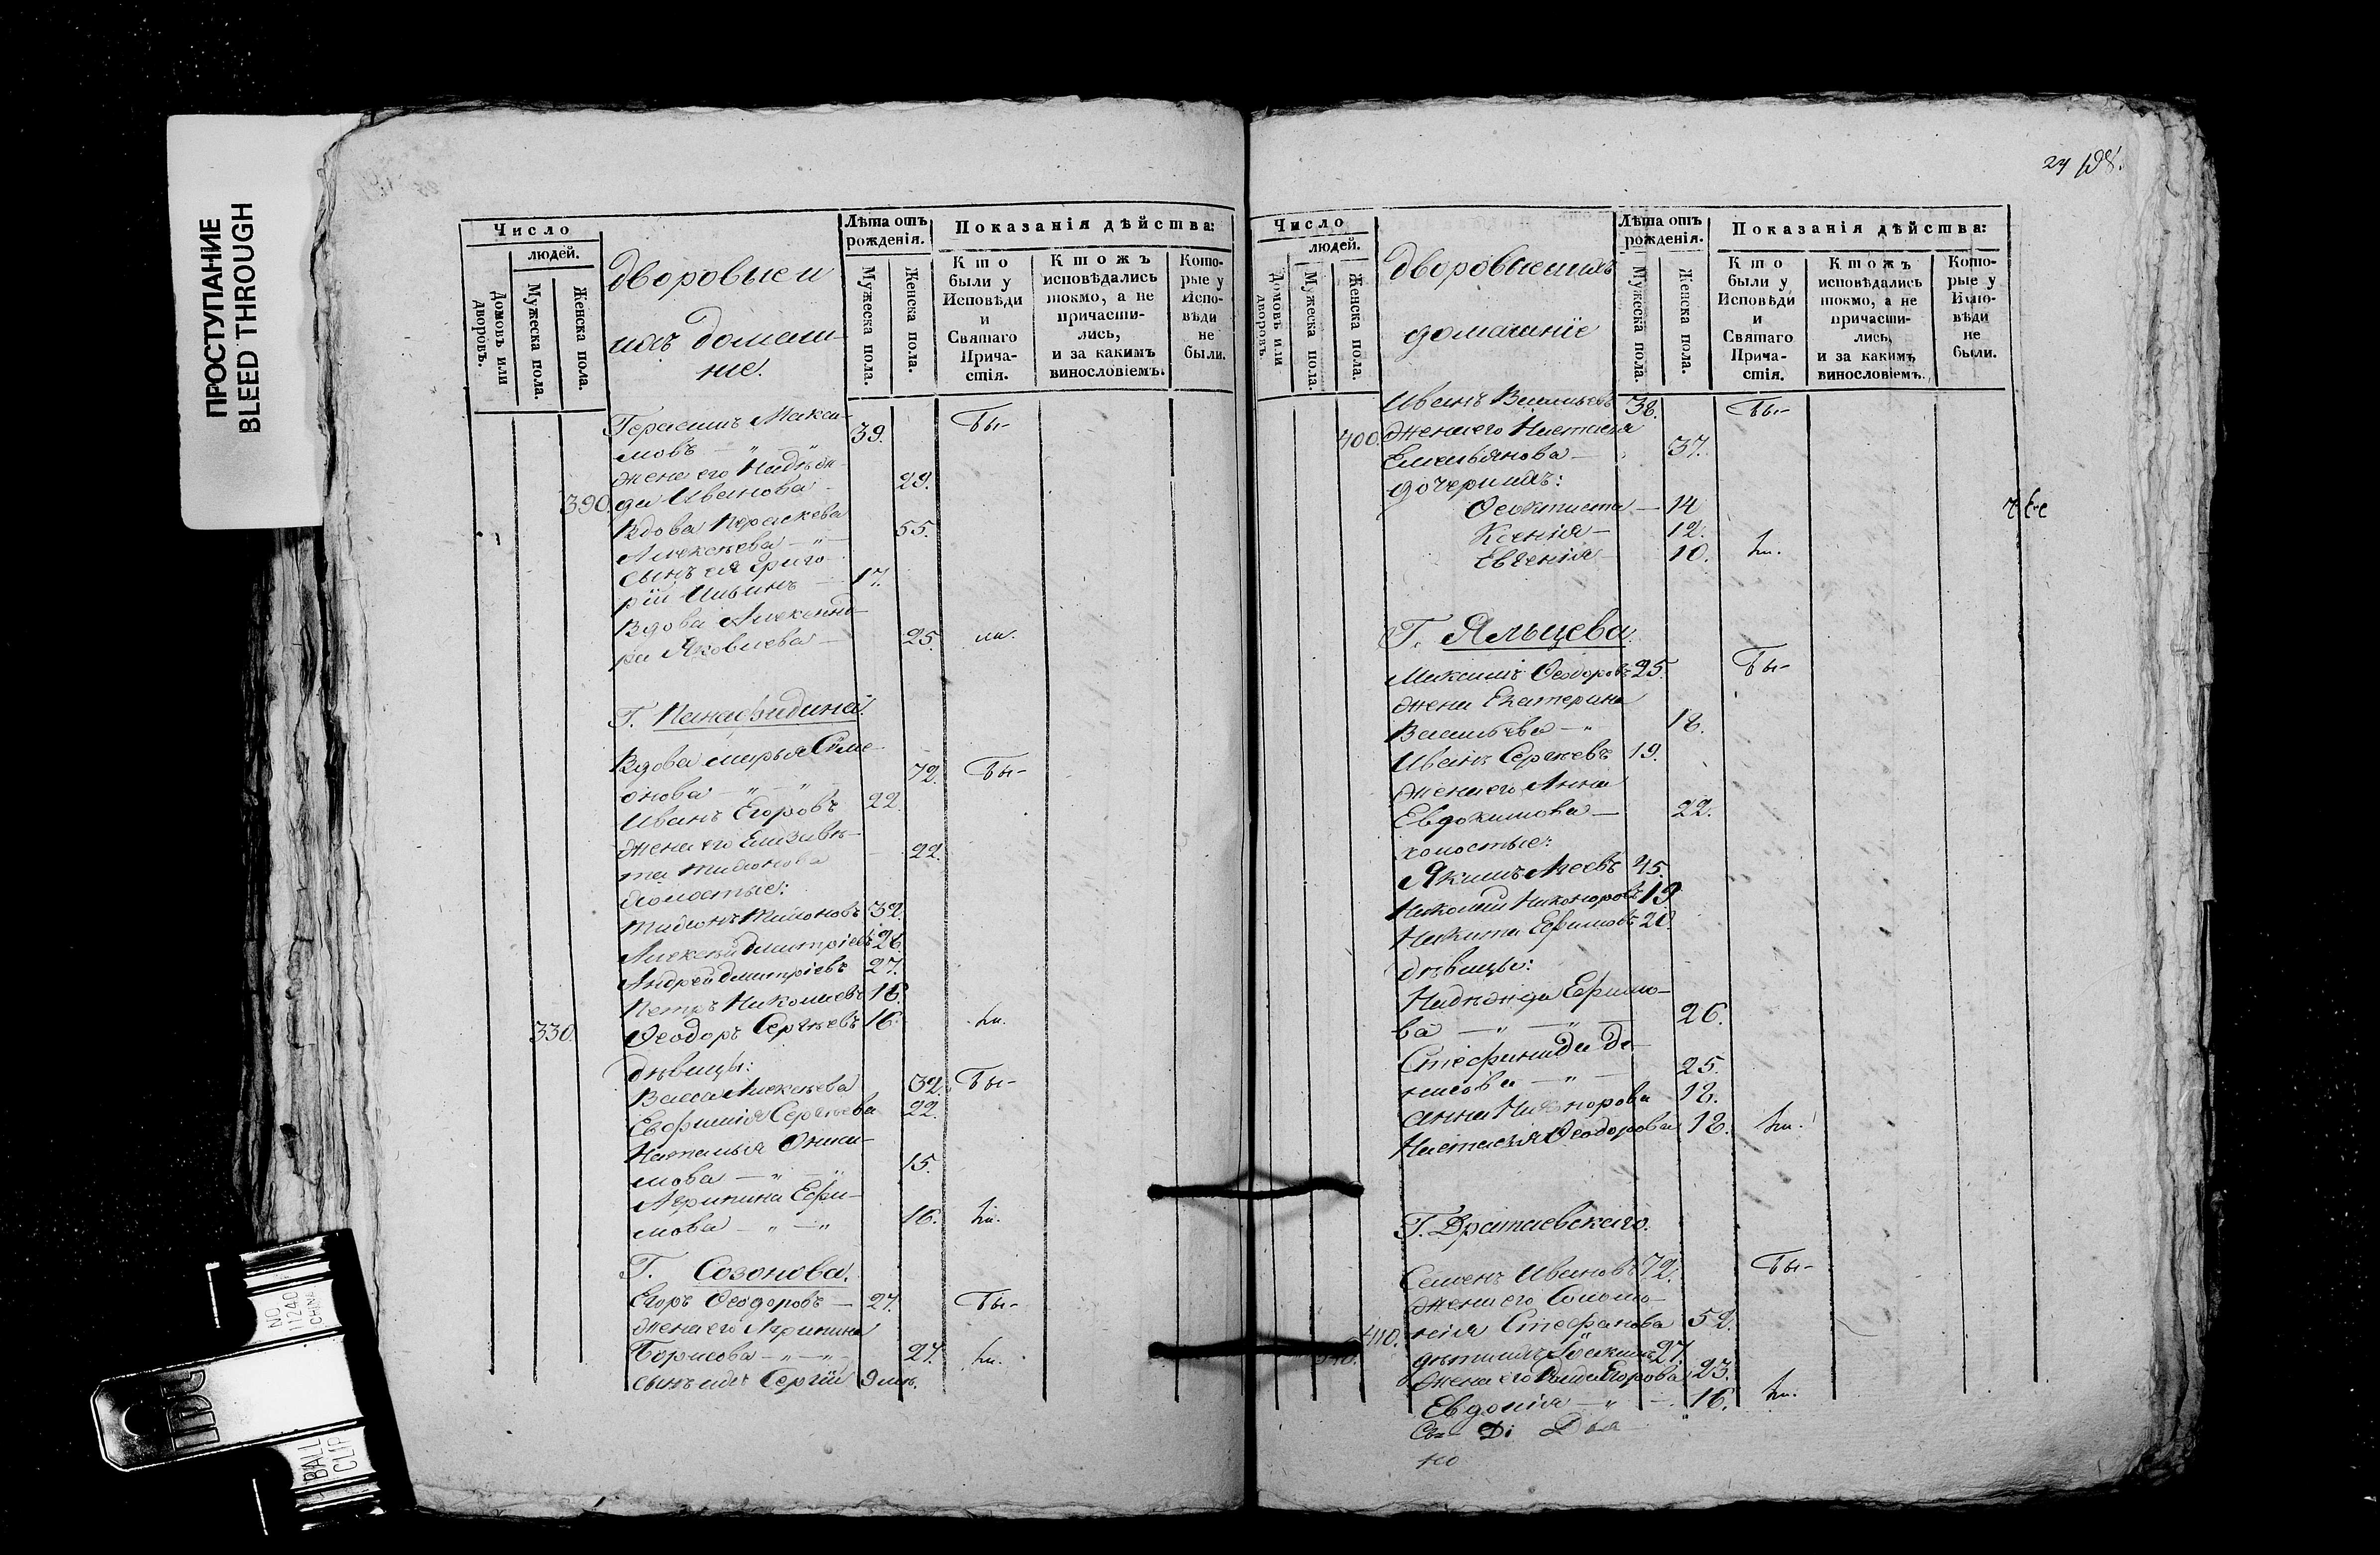 ПРОСТУПАНИЕ
BLEED THROUGH
Число
людей.
Домовъ или дворовъ.
Мужеска пола.
Женска пола.
Дворовые и
ихъ домаш-
ніе.
Лѣта отъ рожденія.
Мужеска пола.
Женска пола.
Показанія дѣйства:
Кто были у Исповѣди и Святаго Прича-стія.
Ктожъ исповѣдались токмо, а не причасти-лись, и за какимъ винословіемъ.
Кото-рые у Испо-вѣди не были.
Герасимъ Макси-
мовъ — 39. Бы-
жена его Надѣж-
390. да Иванова — 29.
Вдова Параскева
Алексѣева — 55.
сынъ ея Григо-
рій Ильинъ — 17.
Вдова Александ-
ра Яковлева — 25. ли.
Г. Панафидина.
Вдова Марья Симе-
онова — 72. Бы-
Иванъ Егоровъ 22.
жена его Елизаве-
та 22.
холостые:
32.
Алексѣй Дмитріевъ 28.
Андрей Дмитріевъ 27.
Петръ Николаевъ 18.
330. Ѳеодоръ Сергѣевъ 16. ли.
дѣвицы:
Васса Алексѣева 32. Бы-
Евфимія Сергѣева 22.
Наталья
мова — 15.
Агрипина Ефи-
мова — 16. ли.
Г. Созонова.
Егоръ Ѳеодоровъ — 27. Бы-
жена его Агрипина
Борисова — 27. ли.
сынъ ихъ Сергій 9 мѣ.
24 198.
Число
людей.
Домовъ или дворовъ.
Мужеска пола.
Женска пола.
Дворовые ихъ
домашніе
Лѣта отъ рожденія.
Мужеска пола.
Женска пола.
Показанія дѣйства:
Кто были у Исповѣди и Святаго Прича-стія.
Ктожъ исповѣдались токмо, а не причасти-лись, и за какимъ винословіемъ.
Кото-рые у Испо-вѣди не были.
Иванъ Васильевъ 38. Бы-
400. жена его Настасья
Емельянова — 37.
дочери ихъ:
Ѳеоктиста — 14
Ксенія — 12.
Евгенія 10. ли.
Г. Яльцева.
Максимъ Ѳеодоровъ 25. Бы-
жена Екатерина
Васильева — 18.
Иванъ Сергѣевъ 19.
жена его Анна
Евдокимова — 22.
холостые:
Якимъ 45.
Николай Никоноровъ 19
Никита Ефимовъ 20.
дѣвицы:
Надежда Ефимо-
ва — 26.
Стефанида Де-
нисова — 25.
Анна Никонорова 18.
Настасья Ѳеодорова 18. ли.
Г.
Семенъ Ивановъ 72. Бы-
жена его Соломо-
410. нія Стефанова 52.
дѣти ихъ 27.
жена его Егорова 23.
Евдокія — 16. ли.
NO
11240
CHINA
BALL
CLIP